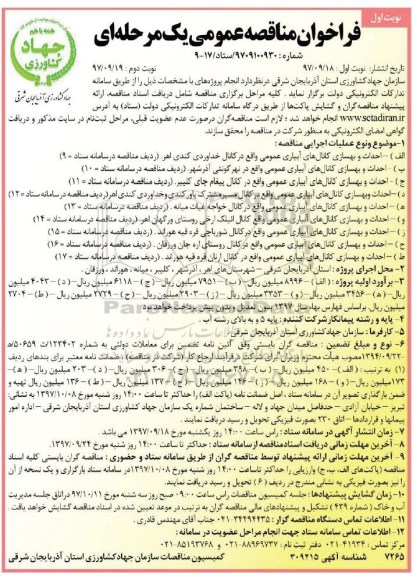 نوبت اول
فراخوان مناقصه عمومی یک مرحله‌ای
همه با هم
جهاد
کشاورزی
جهاد کشاورزی آذربایجان شرقی
شماره: ۹۷۰۹۱۰۰۹۳۰/ستاد/۱۷-۹
تاریخ انتشار: نوبت اول : ۹۷/۰۹/۱۸ نوبت دوم : ۹۷/۰۹/۱۹
سازمان جهادکشاورزی استان آذربایجان شرقی درنظردارد انجام پروژه‌های با مشخصات ذیل را از طریق سامانه
تدارکات الکترونیکی دولت برگزار نماید . کلیه مراحل برگزاری مناقصه شامل دریافت اسناد مناقصه، ارائه
پیشنهاد مناقصه گران و گشایش پاکت‌ها از طریق درگاه سامانه تدارکات الکترونیکی دولت (ستاد) به آدرس
www.sctadiran.ir انجام خواهد شد ؛ لازم است مناقصه‌گران درصورت عدم عضویت قبلی، مراحل ثبت‌نام در سایت مذکور و دریافت
گواهی امضای الکترونیکی به منظور شرکت در مناقصه را محقق سازند.
۱- موضوع ونوع عملیات اجرایی مناقصه:
الف – احداث و بهسازی کانال‌های آبیاری عمومی واقع در کانال خداوردی کندی اهر. (ردیف مناقصه درسامانه ستاد = ۹)
ب – احداث و بهسازی کانال‌های آبیاری عمومی واقع در نهرگونتی آذرشهر. (ردیف مناقصه درسامانه ستاد = ۱۰)
ج – احداث و بهسازی کانال‌های آبیاری عمومی واقع در کانال پیغام چای کلیبر. (ردیف مناقصه درسامانه ستاد = ۱۱)
د – احداث وبهسازی کانال‌های آبیاری عمومی واقع در کانال مسیرمشترک یاورکندی وخداوردی کندی اهر(ردیف مناقصه درسامانه ستاد = ۱۲)
ه – احداث و بهسازی کانال‌های آبیاری عمومی واقع در کانال خواجه غیاث میانه . (ردیف مناقصه درسامانه ستاد = ۱۳)
و – احداث و بهسازی کانال‌های آبیاری عمومی واقع در کانال ائیلک ارخی روستای ورگهان اهر. (ردیف مناقصه درسامانه ستاد = ۱۴)
ز – احداث و بهسازی کانال‌های آبیاری عمومی واقع در کانال شورباجی قره قیه هوراند. (ردیف مناقصه درسامانه ستاد = ۱۵)
ح – احداث و بهسازی کانال‌های آبیاری عمومی واقع در کانال روستای اره جان ورزقان. (ردیف مناقصه درسامانه ستاد = ۱۶)
ط – احداث و بهسازی کانال‌های آبیاری عمومی واقع در کانال ارنان قره قیه هوراند. (ردیف مناقصه درسامانه ستاد = ۱۷)
۲- محل اجرای پروژه : استان آذربایجان شرقی – شهرستان‌های اهر ، آذرشهر ، کلیبر ، میانه ، هوراند ، ورزقان .
۳- برآورد اولیه پروژه : (الف) - ۸۹۹۶ میلیون ریال - (ب) - ۷۹۵۱ میلیون ریال - (ج) - ۶۱۱۸ میلیون ریال - (د) - ۴۰۴۳ میلیون
ریال - (ه) - ۳۴۵۶ میلیون ریال - (و) - ۳۳۵۳ میلیون ریال - (ز) - ۲۹۰۳ میلیون ریال - (ح) - ۲۷۲۹ میلیون ریال - (ط) - ۲۷۰۴
میلیون ریال، براساس فهارس بهاء سال ۱۳۹۷ بدون تعدیل وبدون پیش پرداخت خواهد بود.
۴- پایه و رشته پیمانکار شرکت کننده : پایه ۵ و به بالای رشته آب .
۵- کارفرما : سازمان جهادکشاورزی استان آذربایجان شرقی.
۶- نوع و مبلغ تضمین : مناقصه گران بایستی وفق آئین نامه تضمین برای معاملات دولتی به شماره ۱۲۳۴۰۲/ت۵۰۶۵۹ه
۱۳۹۴/۰۹/۲۲ مصوب هیأت محترم وزیران برای شرکت درفرآیند ارجاع کار (شرکت در مناقصه)، ضمانت نامه معتبر برای بندهای ردیف
(۱) به ترتیب : (الف) - ۴۵۰ میلیون ریال - (ب) - ۳۹۸ میلیون ریال - (ج) - ۳۰۶ میلیون ریال - (د) - ۲۰۳ میلیون ریال - (ه) -
۱۷۳ میلیون ریال - (و) - ۱۶۸ میلیون ریال - (ز) - ۱۴۶ میلیون ریال - (ح) - ۱۳۷ میلیون ریال - (ط) - ۱۳۶ میلیون ریال تهیه و
ضمن بارگذاری تصویر آن در سامانه ستاد، اصل ضمانت نامه (پاکت الف) را حداکثر تا ساعت ۱۴:۰۰ روز شنبه مورخ ۱۳۹۷/۱۰/۰۸ به نشانی:
تبریز – خیابان آزادی – حدفاصل میدان جهاد و لاله – ساختمان شماره یک سازمان جهاد کشاورزی استان آذربایجان شرقی – اداره امور
پیمانها و قراردادها – اتاق ۲۳۰ بصورت فیزیکی تحویل و رسید دریافت نمایند.
۷- زمان انتشار آگهی در سامانه ستاد : راس ساعت ۱۴:۰۰ روز یکشنبه مورخ ۱۳۹۷/۰۹/۱۸ می باشد.
۸- آخرین مهلت زمانی دریافت اسناد مناقصه از سامانه ستاد : حداکثر تا ساعت ۱۴:۰۰ روز شنبه مورخ ۱۳۹۷/۰۹/۲۴
۹- آخرین مهلت زمانی ارائه پیشنهاد توسط مناقصه گران از طریق سامانه ستاد و حضوری : مناقصه گران بایستی کلیه اسناد
مناقصه (پاکت‌های الف، ب، ج) وارزیابی را حداکثر تاساعت ۱۴:۰۰ روز شنبه مورخ ۱۳۹۷/۱۰/۰۸ در سامانه ستاد بارگزاری و یک نسخه از آن
را نیز بصورت فیزیکی به نشانی مندرج در ردیف (۶) تحویل و رسید دریافت نمایند.
۱۰- زمان گشایش پیشنهادها : جلسه کمیسیون مناقصات راس ساعت ۰۹:۰۰ صبح روز سه شنبه مورخ ۹۷/۱۰/۱۱ دراتاق جلسه مدیریت
آب و خاک ( شماره ۴۲۹ ) تشکیل و پیشنهادهای مالی مناقصه گران به ترتیب در موعد تعیین شده در اسناد مناقصه گشایش خواهد یافت .
۱۱- اطلاعات تماس دستگاه مناقصه گزار : ۳۴۴۹۴۴۳۵-۰۴۱ جناب آقای مهندس قادری .
۱۲- اطلاعات تماس سامانه ستاد جهت انجام مراحل عضویت در سامانه :
مرکز تماس ۴۱۹۳۴-۰۲۱ دفتر ثبت نام : ۸۸۹۶۹۷۳۷-۰۲۱ و ۸۵۱۹۳۷۶۸-۰۲۱
۷۲۶۵ شناسه آگهی ۳۰۹۲۱۵ کمیسیون مناقصات سازمان جهادکشاورزی استان آذربایجان شرقی